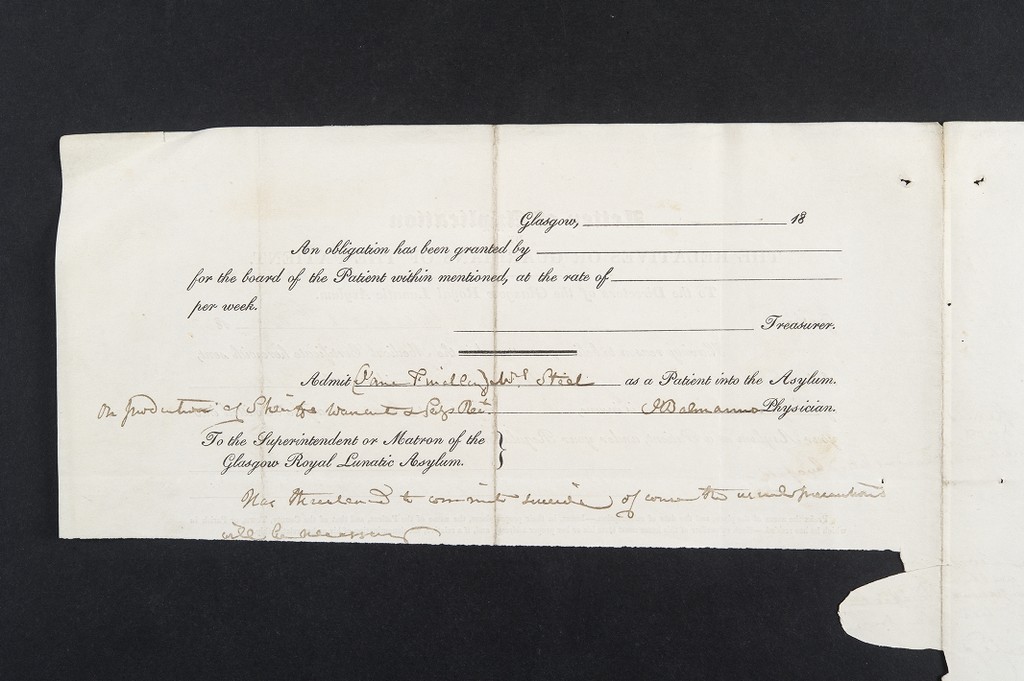 Glasgow, 18
An obligation has been granted by
for the board of the Patient within mentioned, at the rate of
per week.
Treasurer.
Admit Steel as a Patient into the Asylum.
on production of Sheriffs Warrant & Physician.
To the Superintendent or Matron of the
Glasgow Royal Lunatic Asylum.
Has threatened to commit suicide of course the usual precautions
will be necessary